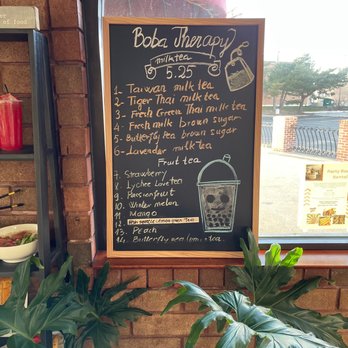 of food
Boba Therapy
milk tea
5.25
1- Taiwan milk tea
2- Tiger Thai milk tea
3- Fresh Green Thai milk tea
4- Fresh milk brown sugar
5- Butterfly tea brown sugar
6- Lavender milk tea
Fruit tea
7- Strawberry
8- Lychee Love tea
9- Passionfruit
10- Winter melon
11- Mango
12-
13- Peach
14- Butterfly pea lem - tea